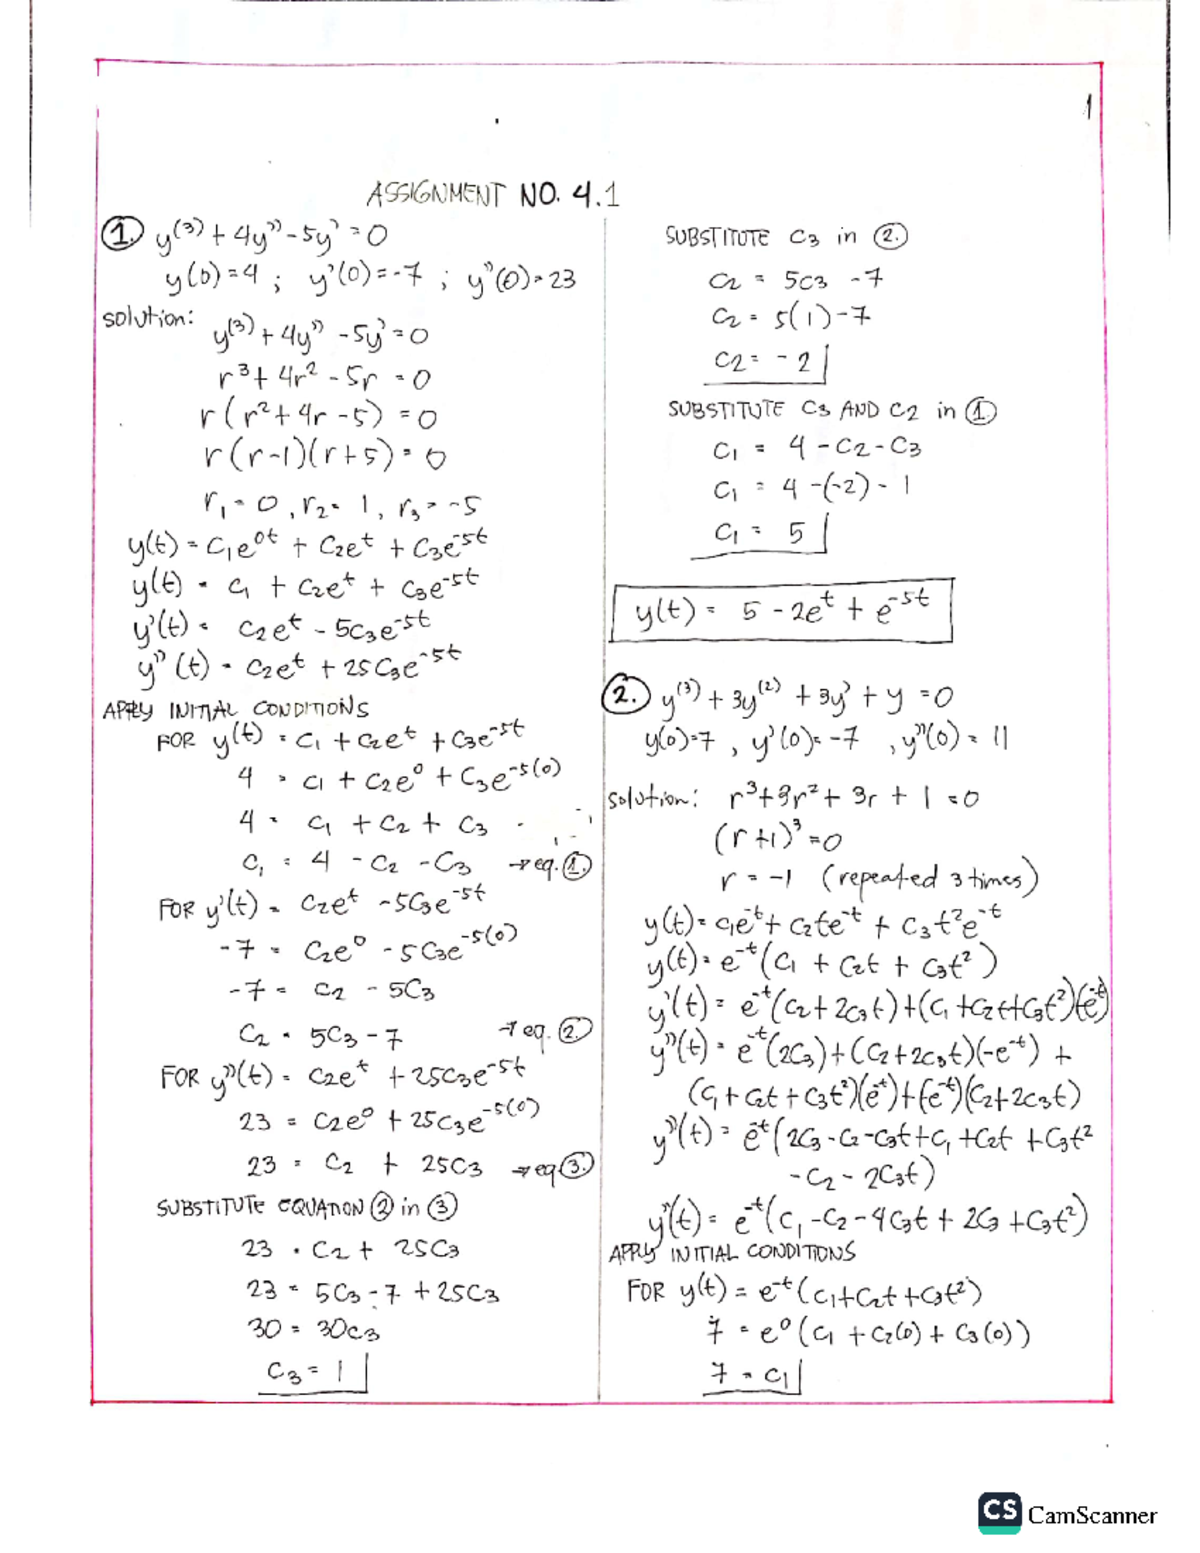 1
ASSIGNMENT NO. 4.1
1. y⁽³⁾ + 4y'' - 5y' = 0
y(0) = 4 ; y'(0) = -7 ; y''(0) = 23
solution:
y⁽³⁾ + 4y'' - 5y' = 0
r³ + 4r² - 5r = 0
r(r² + 4r - 5) = 0
r(r-1)(r+5) = 0
r₁ = 0, r₂ = 1, r₃ = -5
y(t) = C₁e^0t + C₂e^t + C₃e^-5t
y(t) = C₁ + C₂e^t + C₃e^-5t
y'(t) = C₂e^t - 5C₃e^-5t
y''(t) = C₂e^t + 25C₃e^-5t
APPLY INITIAL CONDITIONS
FOR y(t) = C₁ + C₂e^t + C₃e^-5t
4 = C₁ + C₂e⁰ + C₃e^-5(0)
4 = C₁ + C₂ + C₃
C₁ = 4 - C₂ - C₃ → eq. 1.
FOR y'(t) = C₂e^t - 5C₃e^-5t
-7 = C₂e⁰ - 5C₃e^-5(0)
-7 = C₂ - 5C₃
C₂ = 5C₃ - 7 → eq. 2.
FOR y''(t) = C₂e^t + 25C₃e^-5t
23 = C₂e⁰ + 25C₃e^-5(0)
23 = C₂ + 25C₃ → eq 3.
SUBSTITUTE EQUATION 2 in 3
23 = C₂ + 25C₃
23 = 5C₃ - 7 + 25C₃
30 = 30C₃
C₃ = 1
SUBSTITUTE C₃ in 2.
C₂ = 5C₃ - 7
C₂ = 5(1) - 7
C₂ = -2
SUBSTITUTE C₃ AND C₂ in 1.
C₁ = 4 - C₂ - C₃
C₁ = 4 - (-2) - 1
C₁ = 5
y(t) = 5 - 2e^t + e^-5t
2. y⁽³⁾ + 3y⁽²⁾ + 3y' + y = 0
y(0) = 7 , y'(0) = -7 , y''(0) = 11
solution: r³ + 3r² + 3r + 1 = 0
(r+1)³ = 0
r = -1 (repeated 3 times)
y(t) = C₁e^-t + C₂te^-t + C₃t²e^-t
y(t) = e^-t(C₁ + C₂t + C₃t²)
y'(t) = e^-t(C₂ + 2C₃t) + (C₁ + C₂t + C₃t²)(-e^-t)
y''(t) = e^-t(2C₃) + (C₂ + 2C₃t)(-e^-t) +
(C₁ + C₂t + C₃t²)(e^-t) + (-e^-t)(C₂ + 2C₃t)
y''(t) = e^-t(2C₃ - C₂ - C₃t + C₁ + C₂t + C₃t²
- C₂ - 2C₃t)
y''(t) = e^-t(C₁ - C₂ - 4C₃t + 2C₃ + C₃t²)
APPLY INITIAL CONDITIONS
FOR y(t) = e^-t(C₁ + C₂t + C₃t²)
7 = e⁰(C₁ + C₂(0) + C₃(0))
7 = C₁
CS CamScanner